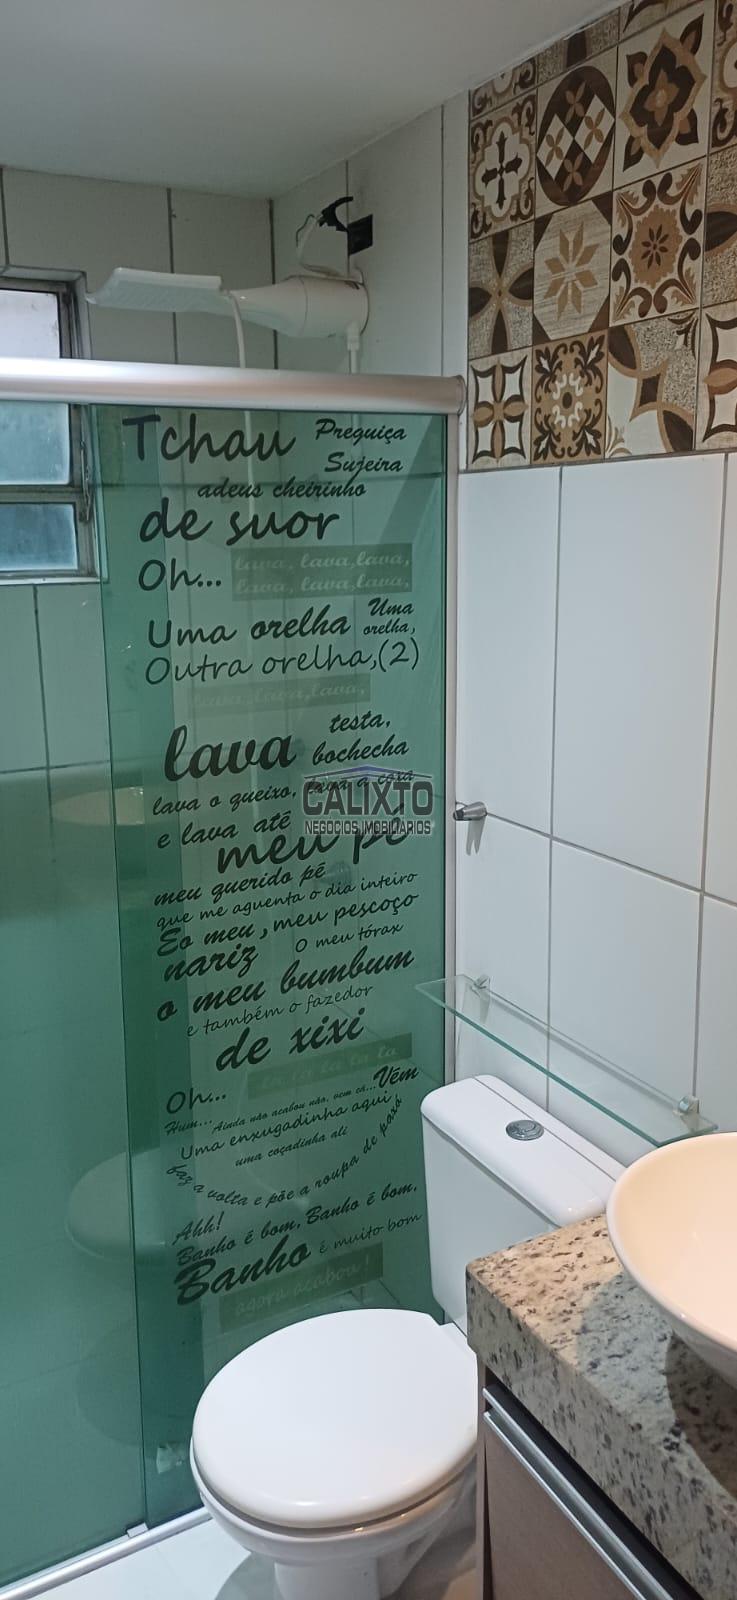 Tchau Preguiça
Sujeira
adeus cheirinho
de suor
Oh... lava, lava,lava,
lava, lava,lava,
Uma orelha Uma
orelha,
Outra orelha,(2)
lava,lava,lava,
lava testa,
bochecha
lava o queixo, lava a coxa
e lava até
meu pé
meu querido pé
que me aguenta o dia inteiro
Eo meu, meu pescoço
nariz O meu tórax
o meu bumbum
e também o fazedor
de xixi
Oh... la la la la la
Hum... Ainda não acabou não, vem cá... Vêm
Uma enxugadinha aqui
uma coçadinha ali
faz a volta e põe a roupa de paxá
Ahh!
Banho é bom, Banho é bom,
Banho é muito bom
agora acabou!
CALIXTO
NEGÓCIOS IMOBILIÁRIOS